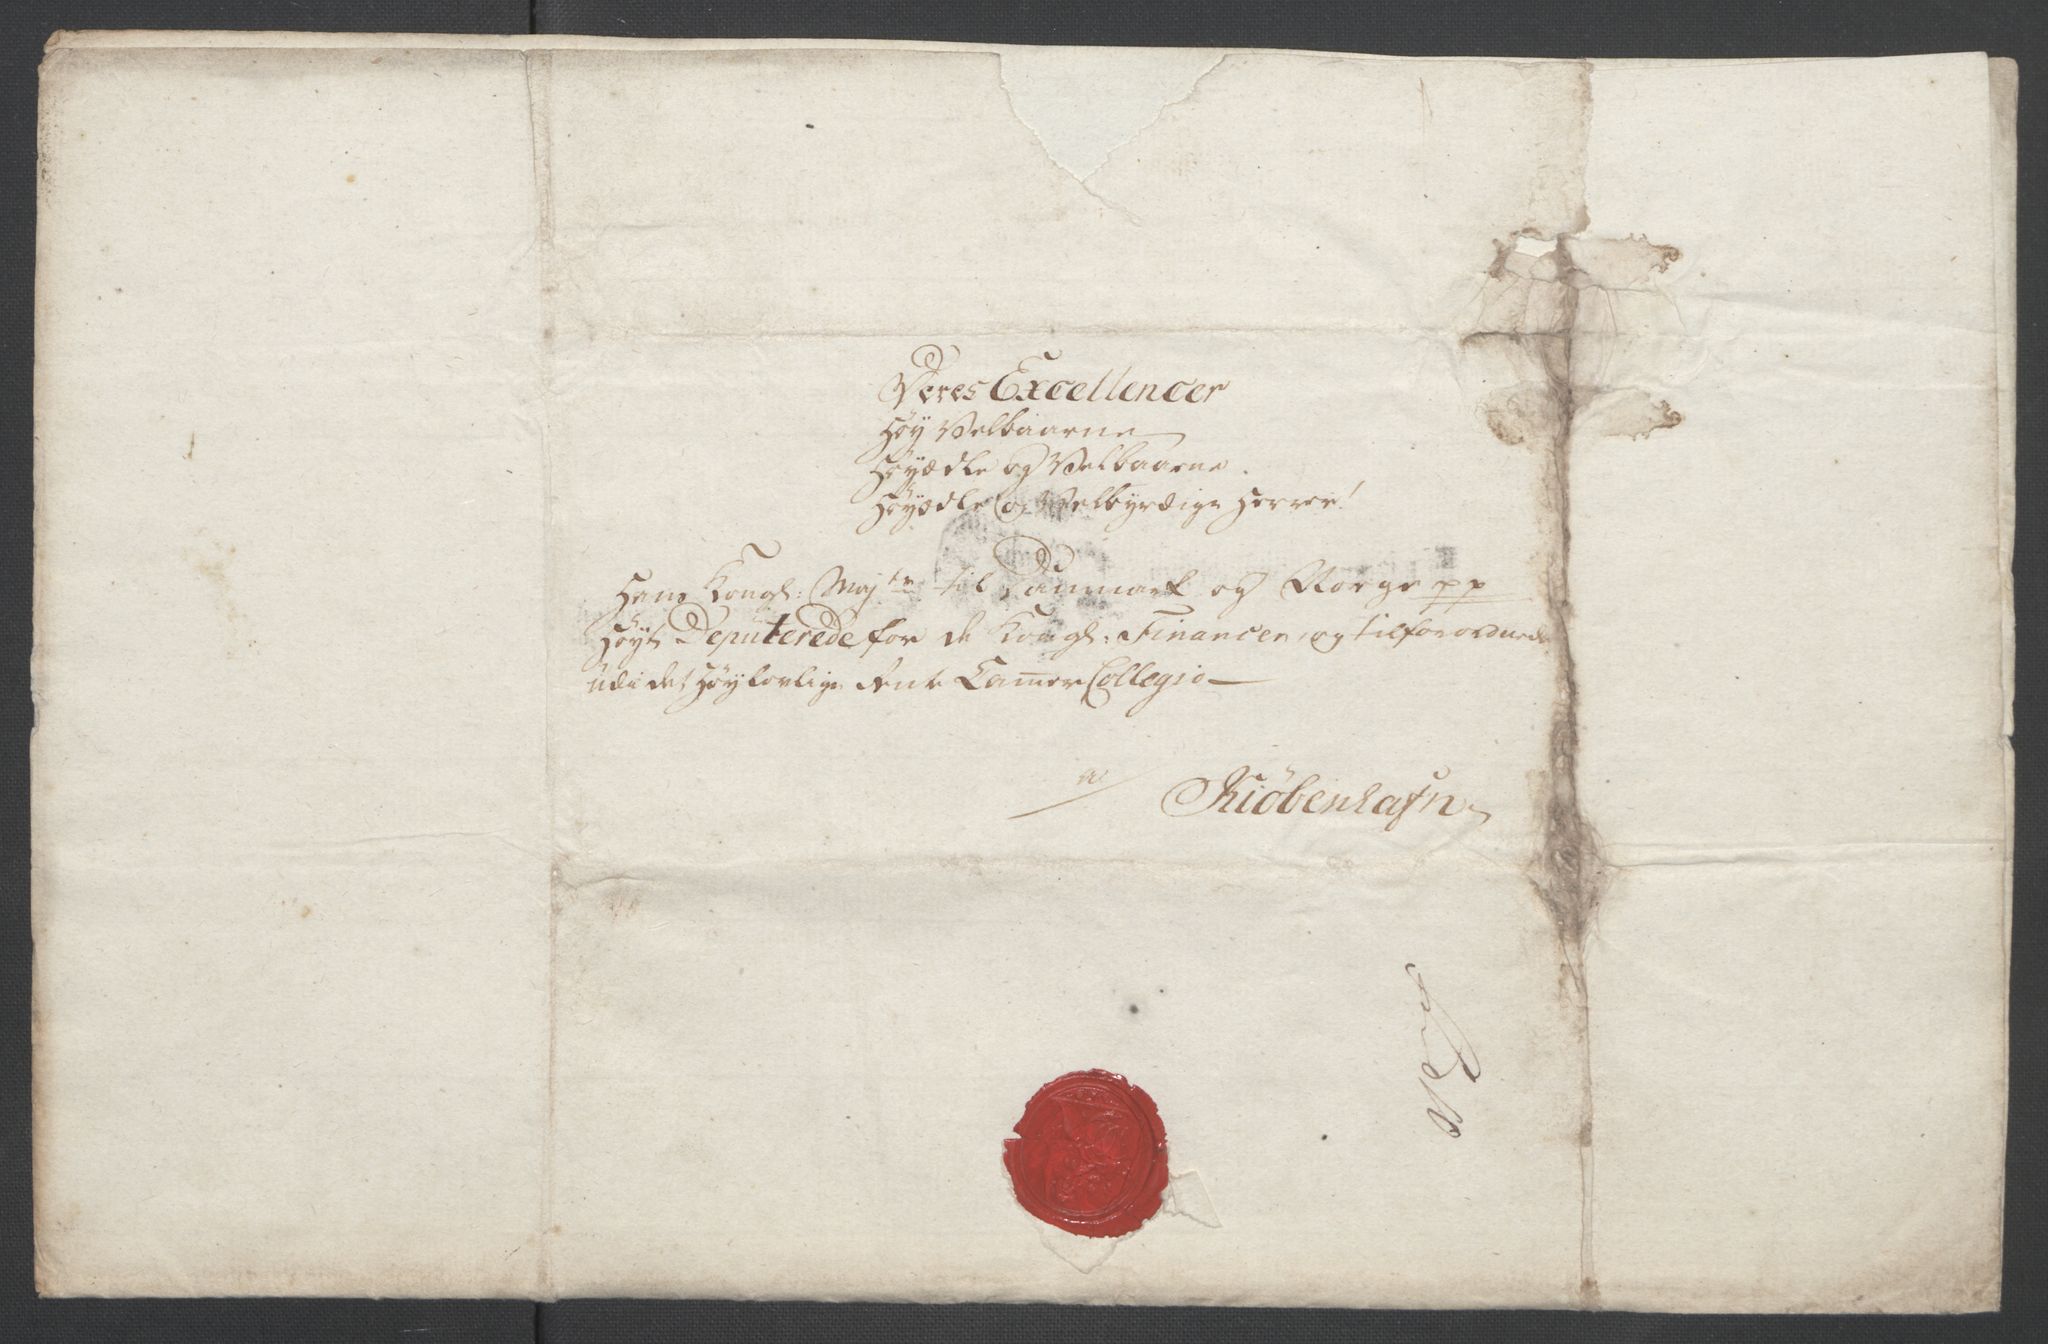 Deres Excellencer
Høy Velbaarne
Høyædle og Velbaarne.
Høyædle og Velbyrdige Herrer!
Hans Kongl: Majts til Danmark og Norge pp
Høyt Deputerede for de Kongl: Financer, og Tilforordnede
udi det Høylovlige Rente Camer Collegio
a
Kiøbenhafn